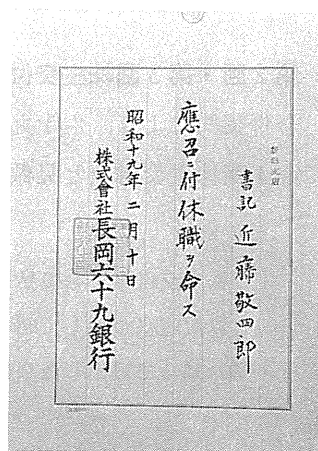 書記 近藤敬四郎
應召ニ付休職ヲ命ス
昭和十九年二月十日
株式會社長岡六十九銀行